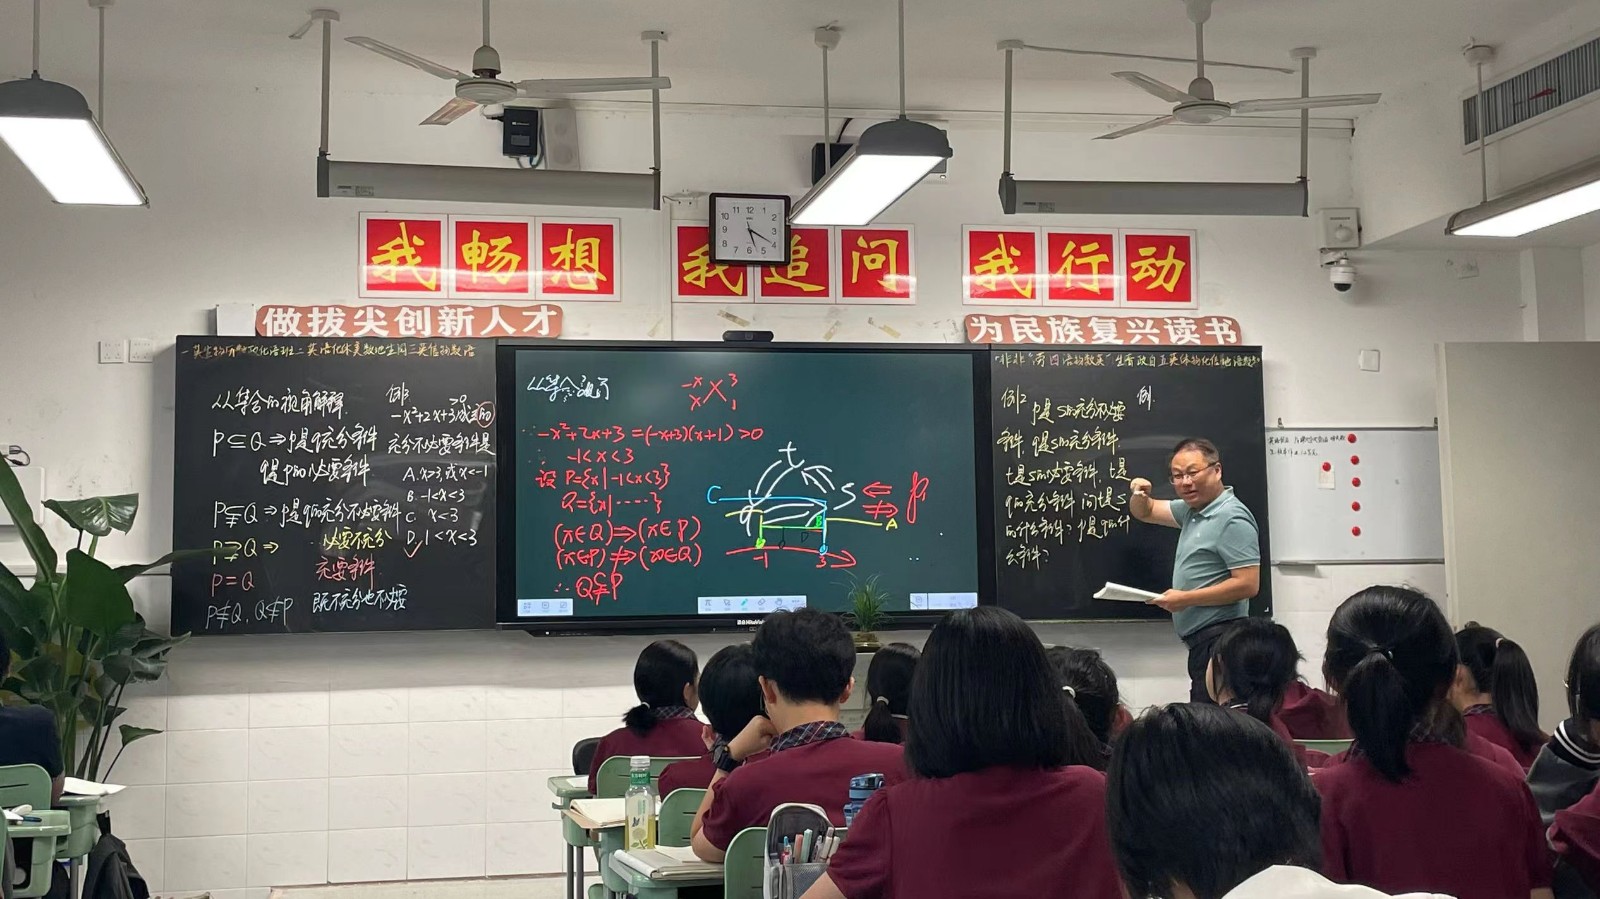 我畅想
我追问
我行动
做拔尖创新人才
为民族复兴读书
从集合的视角解释
P⊆Q⇒p是q充分条件
q是p的必要条件
P⫋Q⇒p是q的充分不必要条件
P⫌Q⇒ 必要不充分
P=Q 充要条件
P⊈Q,Q⊈P 既不充分也不必要
例3
-x²+2x+3>0成立的
充分不必要条件是
A.x>3或x<-1
B.-1<x<3
C. x<3
D.1<x<3
-x²+2x+3=(-x+3)(x+1)>0
∴ -1<x<3
设 P={x|-1<x<3}
Q={x|……}
(x∈Q)⇒(x∈P)
(x∈P)⇏(x∈Q)
∴Q⫋P
-x 3
x 1
t
C
S
q
B
D
A
-1
3
例2 p是s的充分不必要
条件,q是s的充分条件,
t是s的必要条件,t是
q的充分条件 问t是s
的什么条件?p是q的什
么条件?
例